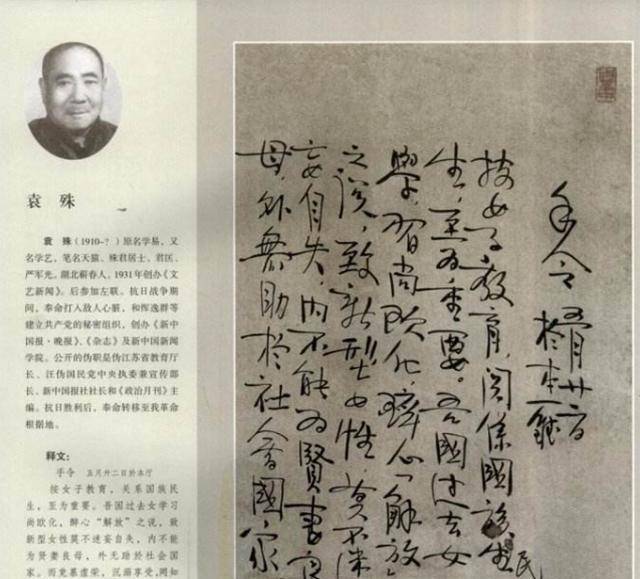 袁 殊
袁 殊(1910-?)原名学易,又
名学艺,笔名天猫、殊君居士、君匡、
严军光。湖北蕲春人。1931年创办《文
艺新闻》。后参加左联。抗日战争期
间,奉命打入敌人心脏,和恽逸群等
建立共产党的秘密组织,创办《新中
国报·晚报》、《杂志》及新中国新闻
学院。公开的伪职是伪江苏省教育厅厅
长、汪伪国民党中央执委兼宣传部
长、新中国报社社长和《政治月刊》主
编。抗日胜利后,奉命转移至我革命
根据地。
释文:
手令 五月卅二日於本厅
按女子教育,关系国族民
生,至为重要。吾国过去女学习
尚欧化,醉心“解放”之说,致
新型女性莫不迷妄自失,内不能
为贤妻良母,外无助於社会国
家。而竞慕虚荣,沉湎享受,罔知
手令
於本廳
按女子教育,関係國族
生,至为重要。吾國过去女
學,習尚欧化,醉心解放
之说,致新型女性,莫不迷
妄自失,内不能为賢妻良
母,外無助於社會國家
民